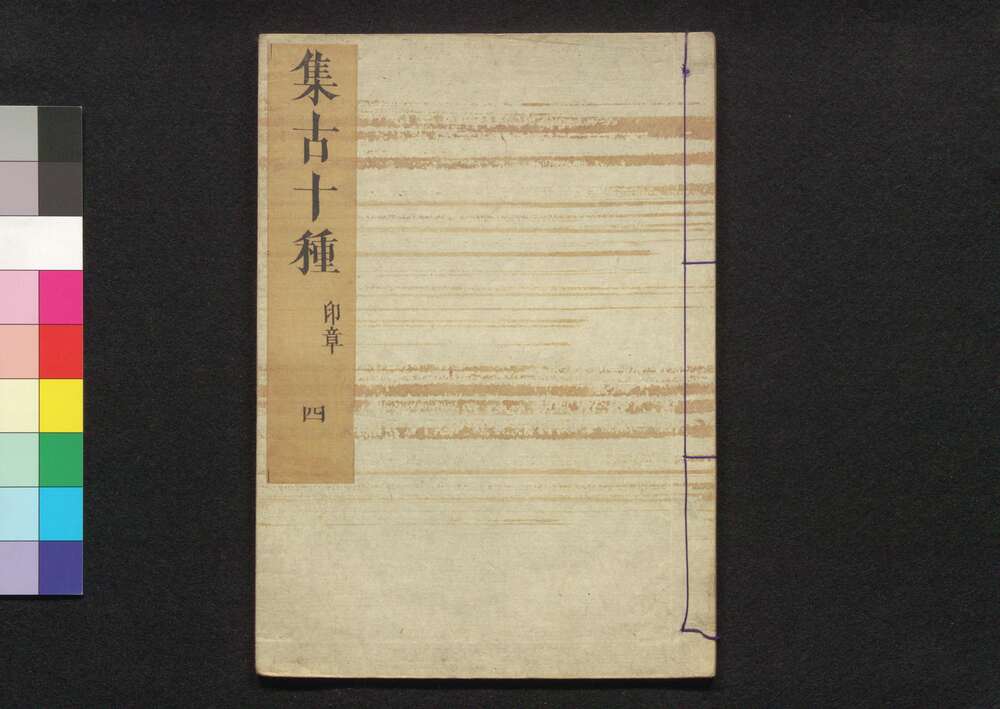 集古十種
印章
四